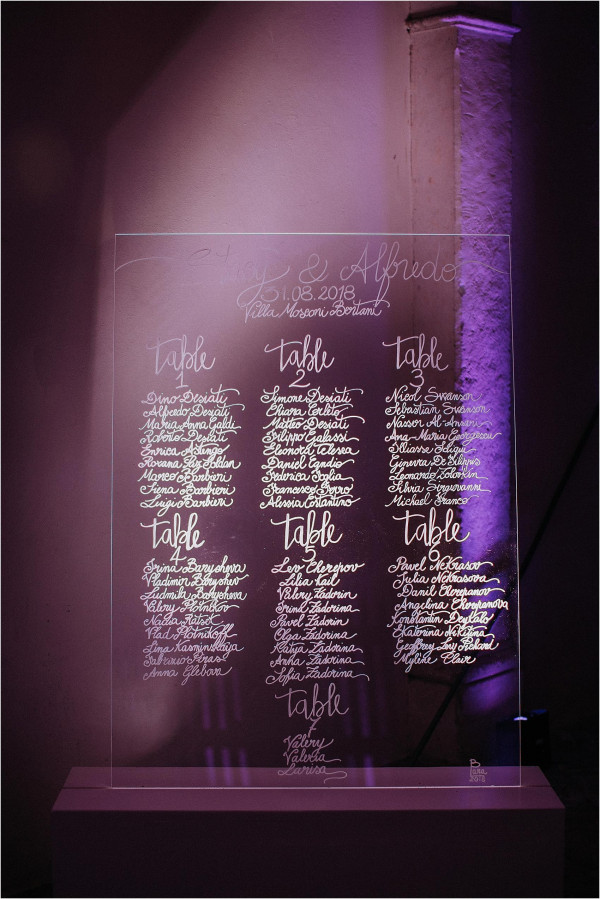 & Alfredo
31.08.2018
Villa Mosconi Bertani
table
1
Dino Desiati
Alfredo Desiati
Maria Anna Galdi
Roberto Desiati
Enrica Astengo
Roxana Liz Roldan
Marco Barbieri
Elena Barbieri
Luigi Barbieri
table
2
Simone Desiati
Eliara Cerleto
Matteo Desiati
Filippo Galassi
Eleonora Telesca
Daniel
Federica Soglia
Francesco Serro
Alessia Costantino
table
3
Nicol Swanson
Sebastian Swanson
Nasser Al-Ansari
Ana-Maria Georgescu
Ginevra De Filippis
Leonardo Zolotkin
Silvia
Michael Franco
table
4
Irina Barysheva
Vladimir Baryshev
Ludmila Barysheva
Valery Plotnikov
Vlad Plotnikoff
Lina Kasninskaya
Anna Glebova
table
5
Lev Cherepov
Lilia Kail
Valery Zadorin
Irina Zadorina
Pavel Zadorin
Olga Zadorina
Katya Zadorina
Anna Zadorina
Sofia Zadorina
table
6
Pavel Nekrasov
Julia Nekrasova
Danil Cherepanov
Angelina Cherepanova
Konstantin
Ekaterina Nikitina
Geoffrey
Mylène Clair
table
7
Valery
Valeria
Larisa
2018